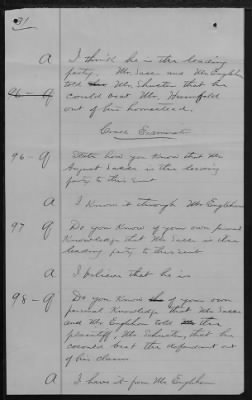 31
A I think he is the leading
party. Mr. Sass and Mr. Englehon
told Mr. Schuster that he
96 - Q could beat Mr. Hunnfeld
out of his homestead.
Cross Examined
96 - Q State how you know that Mr
August Sass is the leading
party to this suit
A I know it through Mr Englehon
97 Q Do you know of your own personal
knowledge that Mr. Sass is the
leading party to this suit
A I believe that he is
98 - Q Do you know of your own
personal knowledge that Mr Sass
and Mr Englehon told the
plaintiff, Mr Schuster, that he
could beat the defendant out
of his claim
A I have it from Mr Englehon